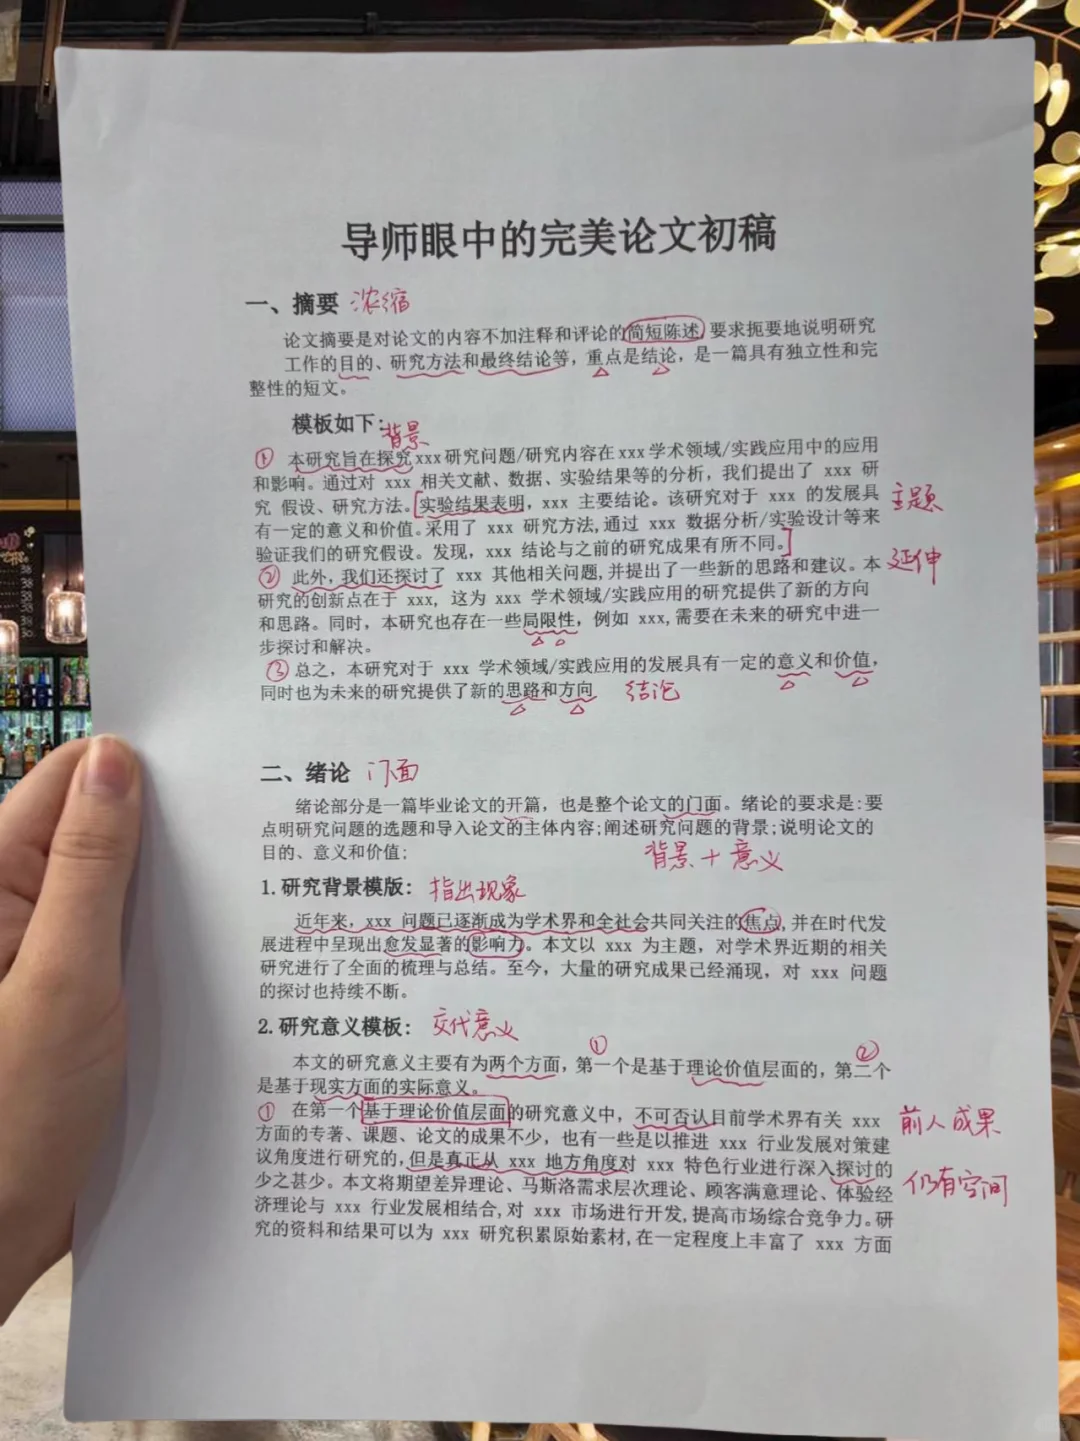 导师眼中的完美论文初稿
一、摘要 浓缩
论文摘要是对论文的内容不加注释和评论的简短陈述,要求扼要地说明研究
工作的目的、研究方法和最终结论等，重点是结论，是一篇具有独立性和完
整性的短文。
模板如下:
背景
① 本研究旨在探究xxx研究问题/研究内容在xxx学术领域/实践应用中的应用
和影响。通过对 xxx 相关文献、数据、实验结果等的分析，我们提出了 xxx 研
究 假设、研究方法。[实验结果表明，xxx 主要结论。该研究对于 xxx 的发展具 主题
有一定的意义和价值。采用了 xxx 研究方法,通过 xxx 数据分析/实验设计等来
验证我们的研究假设。发现，xxx 结论与之前的研究成果有所不同。]
② 此外，我们还探讨了 xxx 其他相关问题,并提出了一些新的思路和建议。本 延伸
研究的创新点在于 xxx, 这为 xxx 学术领域/实践应用的研究提供了新的方向
和思路。同时，本研究也存在一些局限性，例如 xxx,需要在未来的研究中进一
步探讨和解决。
③ 总之，本研究对于 xxx 学术领域/实践应用的发展具有一定的意义和价值，
同时也为未来的研究提供了新的思路和方向 结论
二、绪论 门面
绪论部分是一篇毕业论文的开篇，也是整个论文的门面。绪论的要求是:要
点明研究问题的选题和导入论文的主体内容;阐述研究问题的背景;说明论文的
目的、意义和价值;
背景+意义
1.研究背景模版: 指出现象
近年来，xxx 问题已逐渐成为学术界和全社会共同关注的焦点,并在时代发
展进程中呈现出愈发显著的影响力。本文以 xxx 为主题，对学术界近期的相关
研究进行了全面的梳理与总结。至今，大量的研究成果已经涌现，对 xxx 问题
的探讨也持续不断。
2.研究意义模板: 交代意义
① ②
本文的研究意义主要有为两个方面，第一个是基于理论价值层面的，第二个
是基于现实方面的实际意义。
① 在第一个基于理论价值层面的研究意义中，不可否认目前学术界有关 xxx 前人成果
方面的专著、课题、论文的成果不少，也有一些是以推进 xxx 行业发展对策建
议角度进行研究的,但是真正从 xxx 地方角度对 xxx 特色行业进行深入探讨的 仍有空间
少之甚少。本文将期望差异理论、马斯洛需求层次理论、顾客满意理论、体验经
济理论与 xxx 行业发展相结合,对 xxx 市场进行开发,提高市场综合竞争力。研
究的资料和结果可以为 xxx 研究积累原始素材,在一定程度上丰富了 xxx 方面